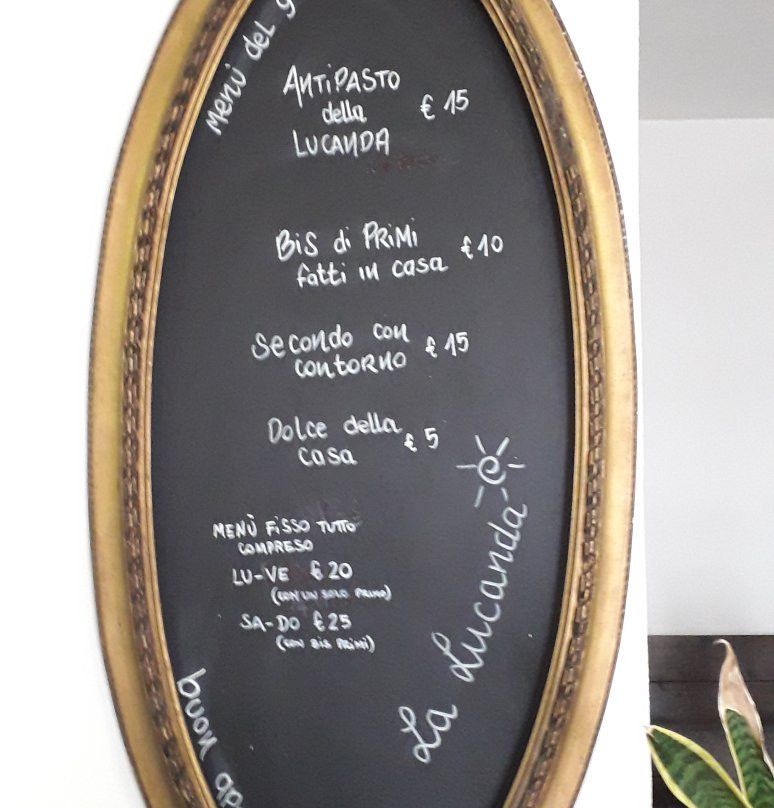 Menù del g
ANTIPASTO
della € 15
LUCANDA
Bis di PRiMi €10
fatti in casa
Secondo con € 15
contorno
Dolce della € 5
casa
MENÙ FiSSO TUTTO
COMPRESO
LU-VE €20
(CON UN SOLO PRIMO)
SA-DO €25
(CON BIS PRIMI)
La Lucanda
buon ap